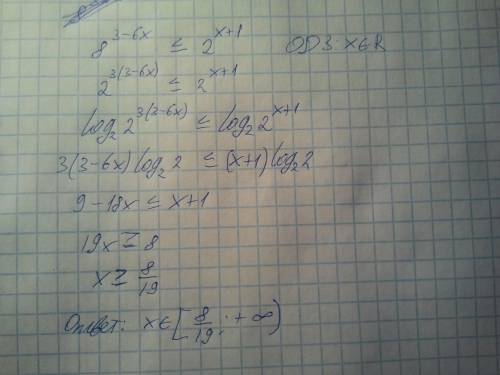 8^{3-6x} ≤ 2^{x+1} ОДЗ: x∈R
2^{3(3-6x)} ≤ 2^{x+1}
log₂2^{3(3-6x)} ≤ log₂2^{x+1}
3(3-6x)log₂2 ≤ (x+1)log₂2
9-18x ≤ x+1
19x ≥ 8
x ≥ 8/19
Ответ: x∈[8/19; +∞)